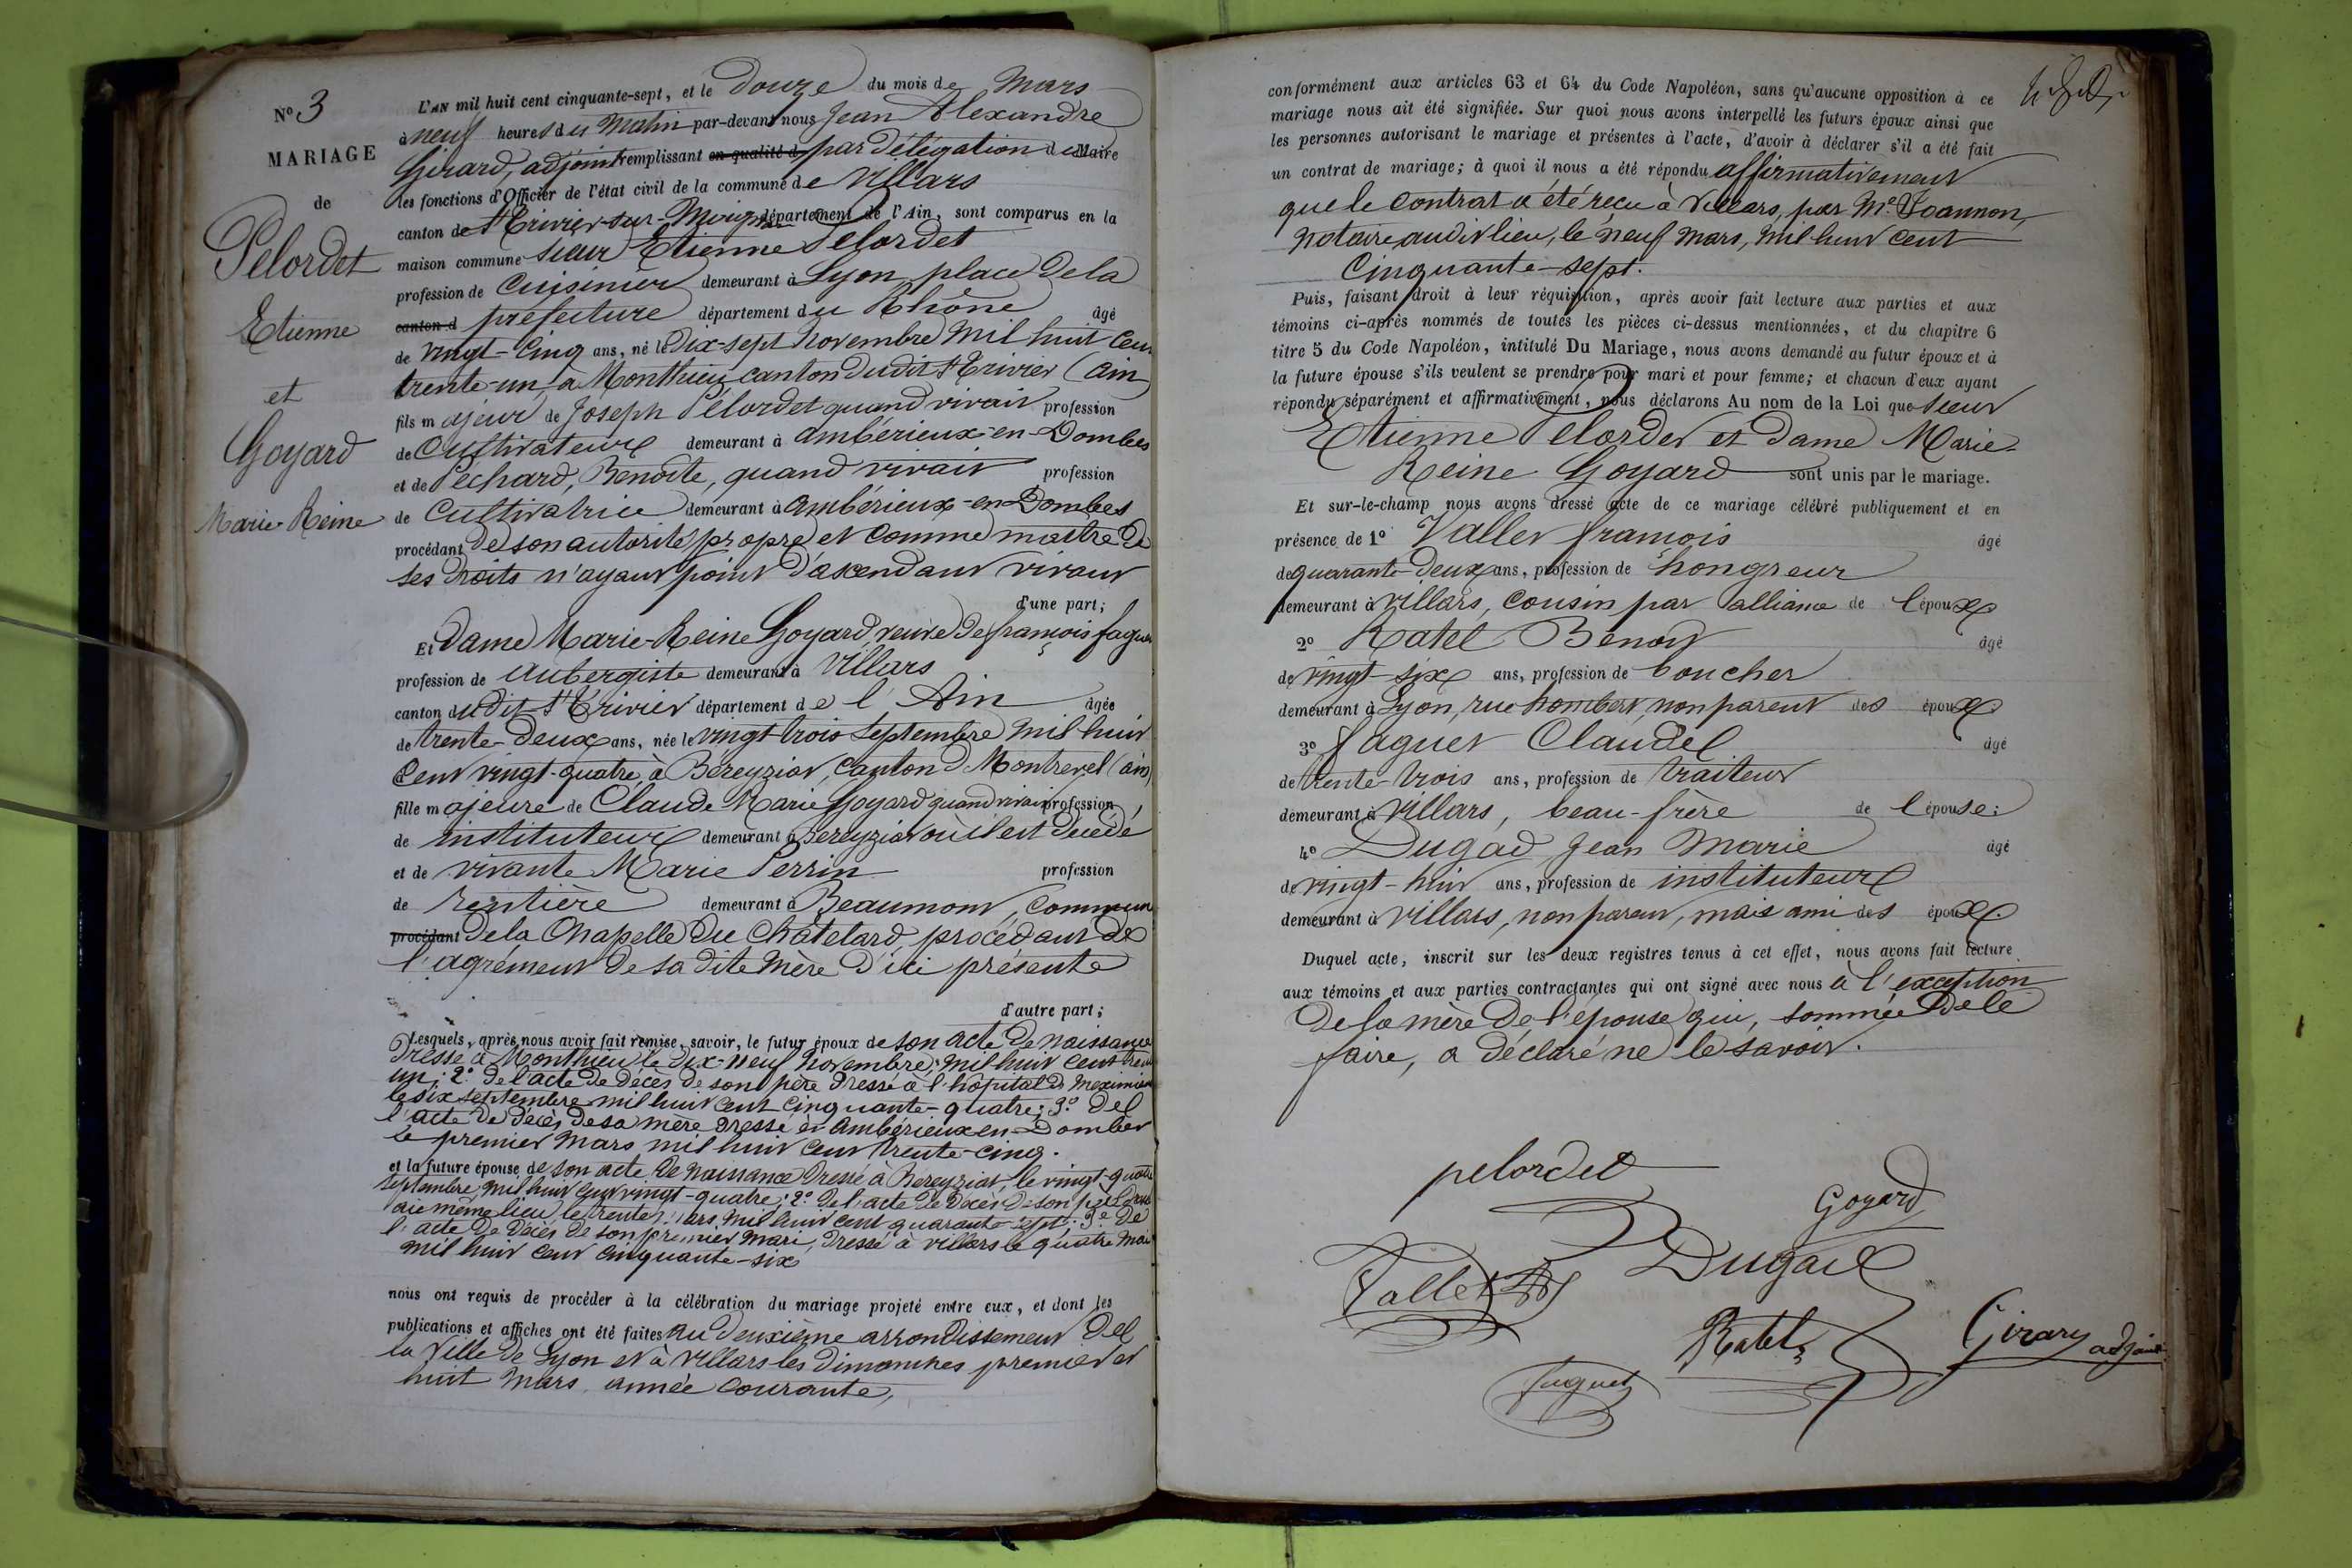 N° 3
MARIAGE
de
Pelordet
Etienne
et
Goyard
Marie-Reine
L'AN mil huit cent cinquante-sept, et le Douze du mois de Mars
à neuf heures du Matin par-devant nous Jean Alexandre
Girard, adjoint remplissant en qualité d par délégation du Maire
les fonctions d'Officier de l'état civil de la commune de Villars
canton de St Trivier-sur-Moignans département de l'Ain, sont comparus en la
maison commune sieur Etienne Pelordet
profession de Cuisinier demeurant à Lyon, place de la
canton d préfecture département du Rhône âgé
de vingt-cinq ans, né le Dix-sept Novembre Mil huit cent
trente-un, à Monthieu canton dudit St Trivier (Ain)
fils majeur de Joseph Pélordet quand vivait profession
de Cultivateur demeurant à Ambérieux-en-Dombes
et de Péchard, Benoîte, quand vivait profession
de Cultivatrice demeurant à Ambérieux-en-Dombes
procédant de son autorité propre et comme maître de
ses droits n'ayant point d'ascendant vivant
d'une part;
Et Dame Marie-Reine Goyard, veuve de françois faguet
profession de Aubergiste demeurant à Villars
canton dudit St Trivier département de l'Ain âgée
de trente-deux ans, née le vingt-trois Septembre mil huit
cent vingt-quatre, à Béreyziat, Canton de Montrevel (ain)
fille majeure de Claude Marie Goyard quand vivait profession
de instituteur demeurant à Béreyziat où il est décédé
et de vivante Marie Perrin profession
de Rentière demeurant à Beaumont, Commune
procédant de la Chapelle du Châtelard, procédant de
l'agrément de sa dite mère d'ici présente
d'autre part;
Lesquels, après nous avoir fait remise, savoir, le futur époux de son acte de naissance
dressé à Monthieu le dix-neuf Novembre, mil huit cent trente
un; 2° de l'acte de décès de son père dressé à l'hôpital de Meximieux
le six septembre mil huit cent cinquante-quatre; 3° de
l'acte de décès de sa mère dressé à Ambérieux en-Dombes
le premier Mars mil huit cent trente-cinq.
et la future épouse de son acte de naissance dressé à Béreyziat, le vingt-quatre
septembre, mil huit cent vingt-quatre; 2° de l'acte de décès de son père dressé
au même lieu le trente Mars, mil huit cent quarante-sept; 3° de
l'acte de décès de son premier mari, dressé à Villars le quatre mai
mil huit cent cinquante-six
nous ont requis de procéder à la célébration du mariage projeté entre eux, et dont les
publications et affiches ont été faites au deuxième arrondissement de
la Ville de Lyon et à Villars les Dimanches premier et
huit Mars, année courante,
conformément aux articles 63 et 64 du Code Napoléon, sans qu'aucune opposition à ce
mariage nous ait été signifiée. Sur quoi nous avons interpellé les futurs époux ainsi que
les personnes autorisant le mariage et présentes à l'acte, d'avoir à déclarer s'il a été fait
un contrat de mariage; à quoi il nous a été répondu affirmativement
que le contrat a été reçu à Villars, par Me Joannon,
notaire audit lieu, le neuf Mars, mil huit cent
Cinquante-sept.
Puis, faisant droit à leur réquisition, après avoir fait lecture aux parties et aux
témoins ci-après nommés de toutes les pièces ci-dessus mentionnées, et du chapitre 6
titre 5 du Code Napoléon, intitulé Du Mariage, nous avons demandé au futur époux et à
la future épouse s'ils veulent se prendre pour mari et pour femme; et chacun d'eux ayant
répondu séparément et affirmativement, nous déclarons Au nom de la Loi que sieur
Etienne Pelordet et dame Marie-
Reine Goyard sont unis par le mariage.
Et sur-le-champ nous avons dressé acte de ce mariage célébré publiquement et en
présence de 1° Vallet françois âgé
de quarante-deux ans, profession de hongreur
demeurant à Villars, cousin par alliance de l'époux
2° Ratel Benoit âgé
de vingt-six ans, profession de boucher
demeurant à Lyon, rue hombert, non parent des époux
3° faguet Claude âgé
de trente-trois ans, profession de traiteur
demeurant à Villars, beau-frère de l'épouse:
4° Dugad Jean Marie âgé
de vingt-huit ans, profession de instituteur
demeurant à Villars, non parent, mais ami des époux.
Duquel acte, inscrit sur les deux registres tenus à cet effet, nous avons fait lecture
aux témoins et aux parties contractantes qui ont signé avec nous à l'exception
de la mère de l'épouse qui, sommée de le
faire, a déclaré ne le savoir.
pelordet
Goyard
Vallet
Dugad
Ratel
Girard adjoint
faguet